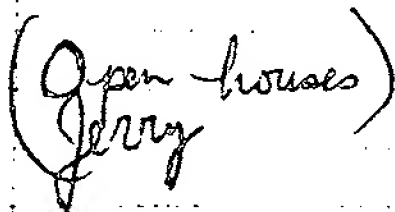 (Open houses)
Jerry